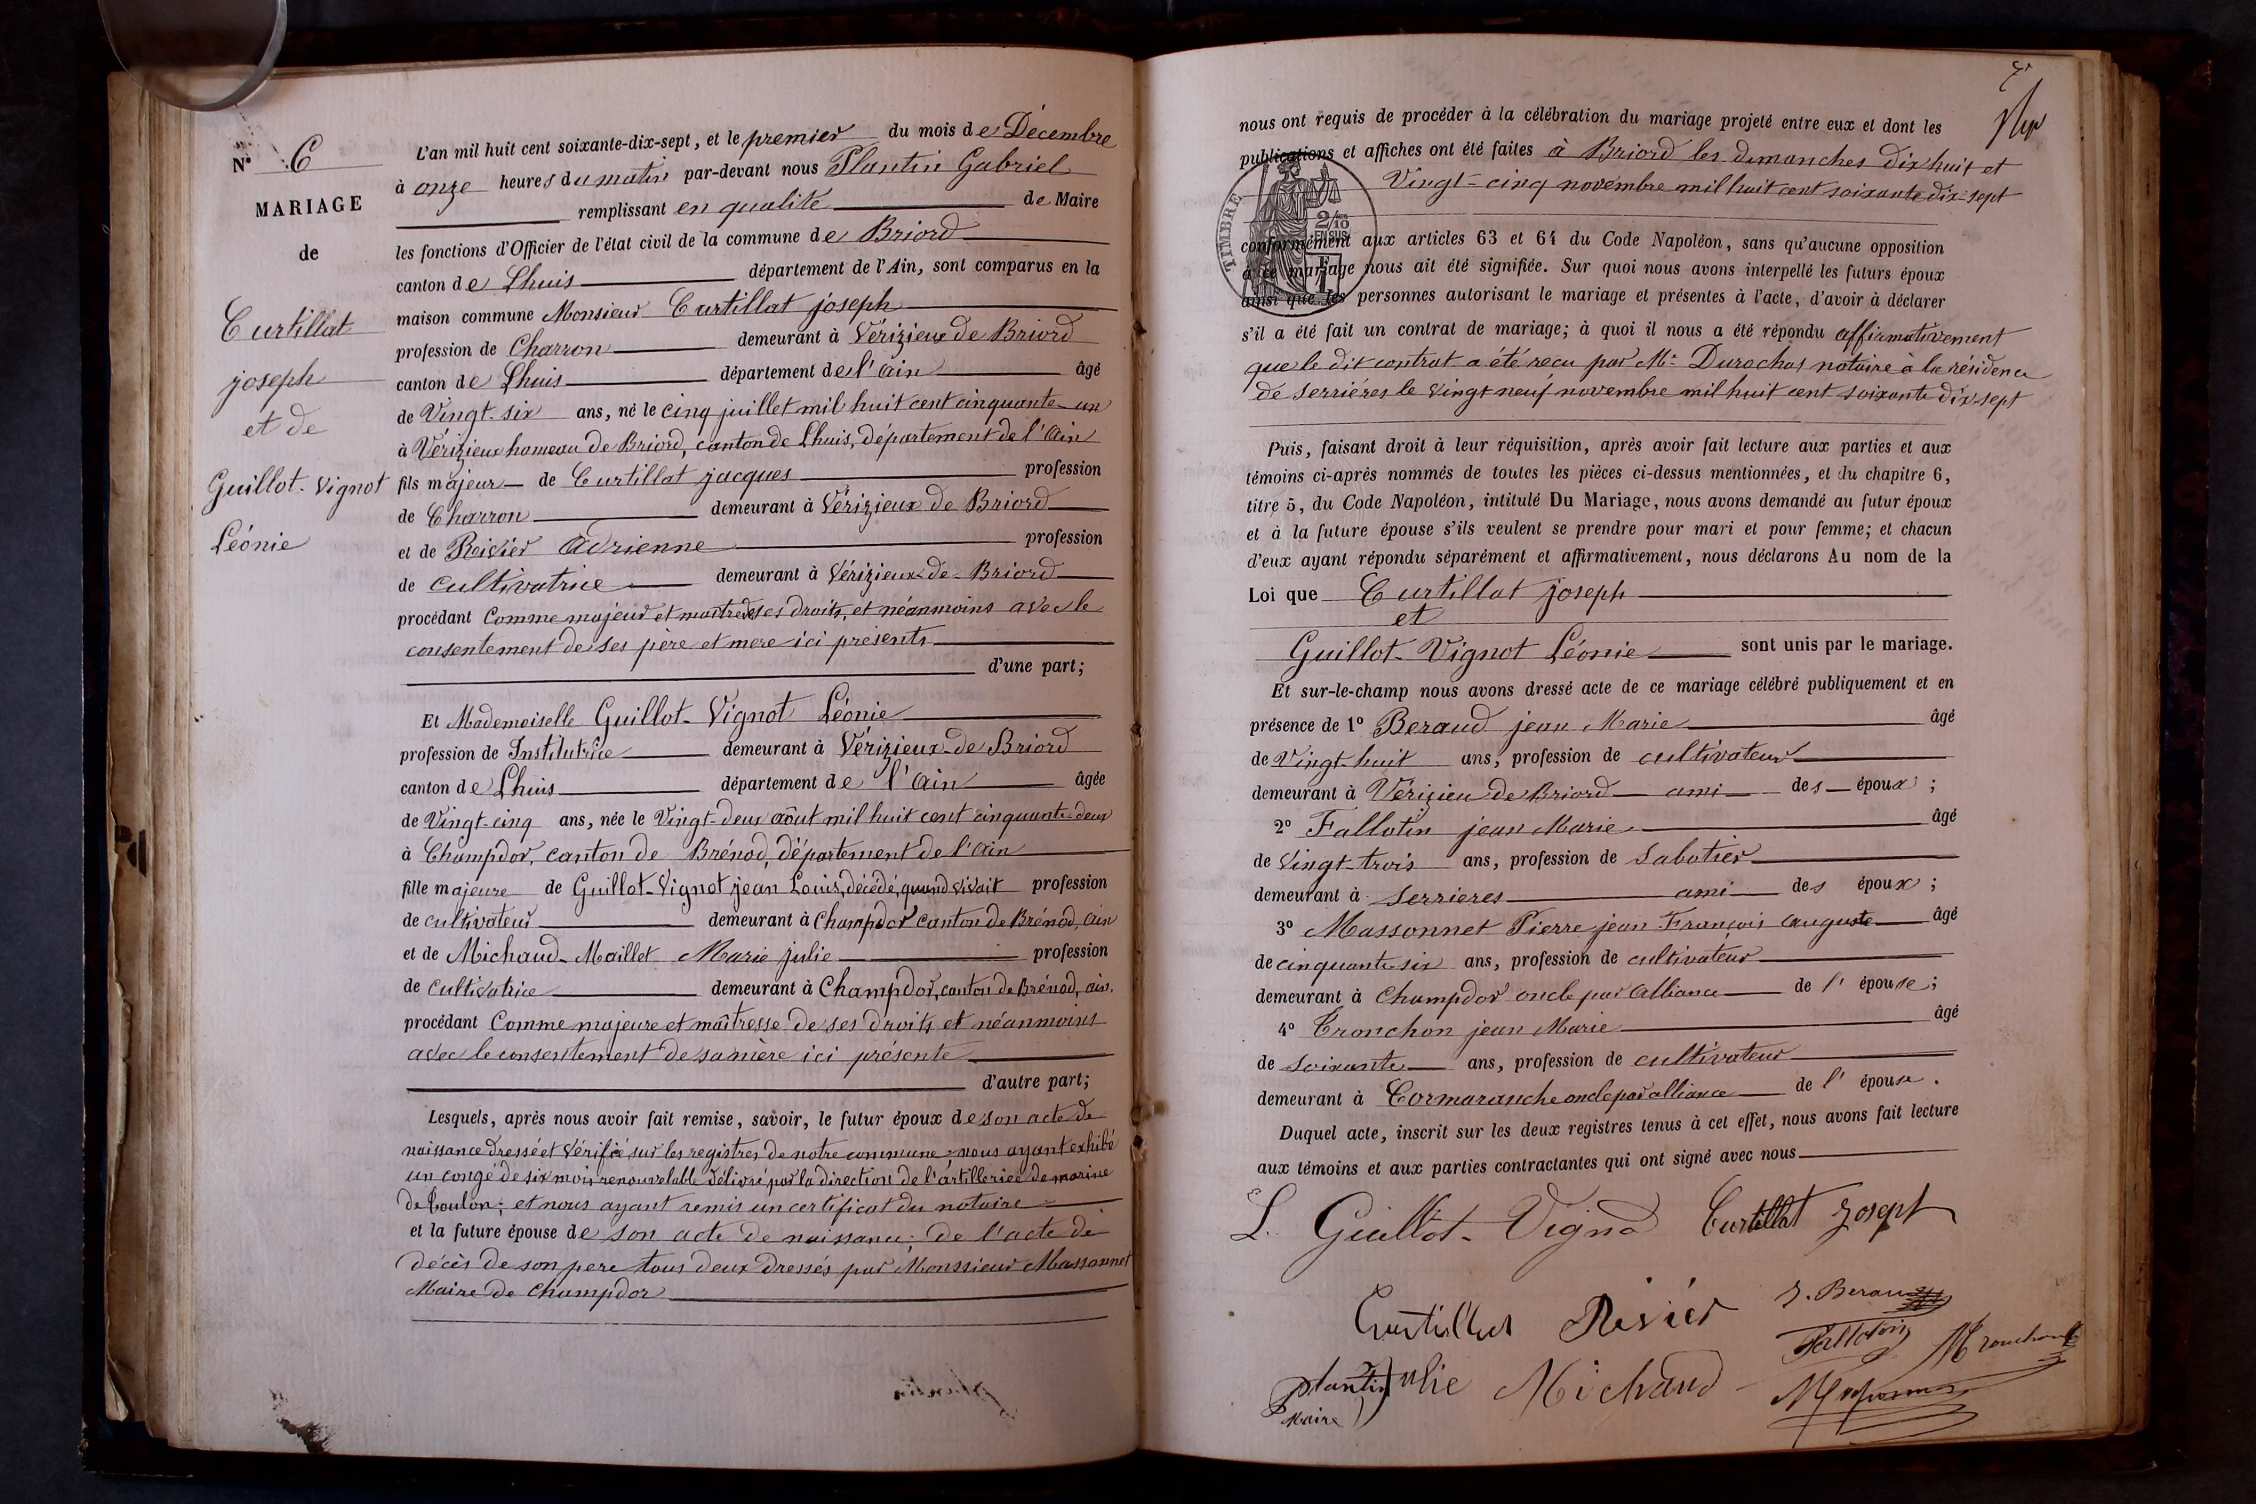 N° 6
MARIAGE
de
Curtillat
joseph
et de
Guillot-Vignot
Léonie
L'an mil huit cent soixante-dix-sept, et le premier du mois de Décembre
à onze heures du matin par-devant nous Plantin Gabriel
remplissant en qualité de Maire
les fonctions d'Officier de l'état civil de la commune de Briord
canton de Lhuis département de l'Ain, sont comparus en la
maison commune Monsieur Curtillat joseph
profession de Charron demeurant à Vérizieux de Briord
canton de Lhuis département de l'ain âgé
de Vingt-six ans, né le cinq juillet mil huit cent cinquante-un
à Vérizieux hameau de Briord, canton de Lhuis, département de l'ain
fils majeur de Curtillat jacques profession
de Charron demeurant à Vérizieux de Briord
et de Rivier Adrienne profession
de cultivatrice demeurant à Vérizieux-de-Briord
procédant Comme majeur et maître de ses droits, et néanmoins avec le
consentement de ses père et mere ici présents
d'une part;
Et Mademoiselle Guillot-Vignot Léonie
profession de Institutrice demeurant à Vérizieux-de-Briord
canton de Lhuis département de l'ain âgée
de Vingt-cinq ans, née le Vingt-deux août mil huit cent cinquante-deux
à Champdor, canton de Brénod, département de l'ain
fille majeure de Guillot-Vignot jean Louis, décédé, quand vivait profession
de cultivateur demeurant à Champdor canton de Brénod, ain
et de Michaud-Maillet Marie julie profession
de cultivatrice demeurant à Champdor, canton de Brénod, ain.
procédant Comme majeure et maîtresse de ses droits et néanmoins
avec le consentement de sa mère ici présente
d'autre part;
Lesquels, après nous avoir fait remise, savoir, le futur époux de son acte de
naissance dressé et vérifié sur les registres de notre commune; nous ayant exhibé
un congé de six mois renouvelable délivré par la direction de l'artillerie de marine
de toulon; et nous ayant remis un certificat du notaire
et la future épouse de son acte de naissance; de l'acte de
décès de son pere tous deux dressés par Monssieur Massonnet
Maire de Champdor
nous ont requis de procéder à la célébration du mariage projeté entre eux et dont les
publications et affiches ont été faites à Briord les dimanches dix huit et
Vingt-cinq novembre mil huit cent soixante dix-sept
TIMBRE
2/10
EN SUS
conformément aux articles 63 et 64 du Code Napoléon, sans qu'aucune opposition
à ce mariage nous ait été signifiée. Sur quoi nous avons interpellé les futurs époux
ainsi que les personnes autorisant le mariage et présentes à l'acte, d'avoir à déclarer
s'il a été fait un contrat de mariage; à quoi il nous a été répondu affirmativement
que le dit contrat a été reçu par Me Durochas notaire à la résidence
de serriéres le vingt neuf novembre mil huit cent soixante dix-sept
Puis, faisant droit à leur réquisition, après avoir fait lecture aux parties et aux
témoins ci-après nommés de toutes les pièces ci-dessus mentionnées, et du chapitre 6,
titre 5, du Code Napoléon, intitulé Du Mariage, nous avons demandé au futur époux
et à la future épouse s'ils veulent se prendre pour mari et pour femme; et chacun
d'eux ayant répondu séparément et affirmativement, nous déclarons Au nom de la
Loi que Curtillat joseph
et
Guillot-Vignot Léonie sont unis par le mariage.
Et sur-le-champ nous avons dressé acte de ce mariage célébré publiquement et en
présence de 1° Beraud jean Marie âgé
de Vingt-huit ans, profession de cultivateur
demeurant à Vérizieu de Briord ami des époux;
2° Fallotin jean Marie âgé
de vingt-trois ans, profession de sabotier
demeurant à serrieres ami des époux;
3° Massonnet Pierre jean François auguste âgé
de cinquante-six ans, profession de cultivateur
demeurant à Champdor oncle par alliance de l'épouse;
4° Tronchon jean Marie âgé
de soixante ans, profession de cultivateur
demeurant à Cormaranche oncle par alliance de l'épouse.
Duquel acte, inscrit sur les deux registres tenus à cet effet, nous avons fait lecture
aux témoins et aux parties contractantes qui ont signé avec nous
L. Guillot-Vigno Curtillat Joseph
Curtillat Rivier J. Beraud
Fallotin Tronchon
plantin julie Michaud Massonnet
Maire